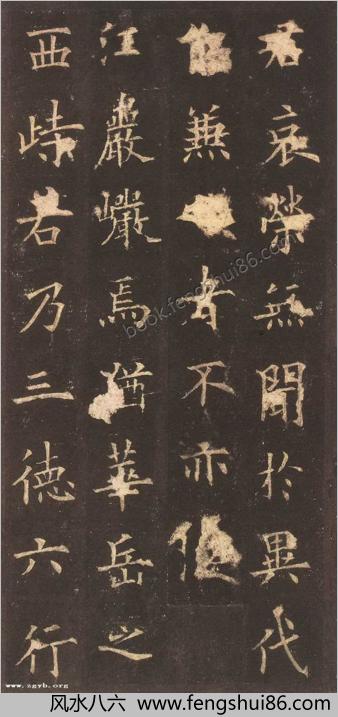 君哀榮無聞於異代
兼者不亦
汪巖巖焉猶華岳之
西峙若乃三德六行
book.fengshui86.com
www.zgyb.org
风水八六 www.fengshui86.com